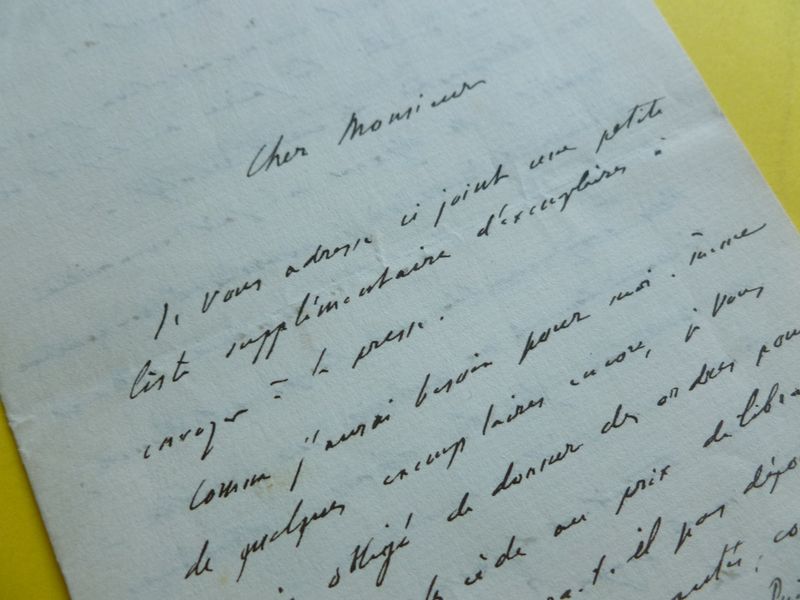 Cher Monsieur
Je vous adresse ci joint une petite
liste supplémentaire d'exemplaires à
envoyer à la presse.
Comme j'aurai besoin pour moi-même
de quelques exemplaires encore, je vous
obligé de donner des ordres pour
cède au prix de libra
il pas dépo